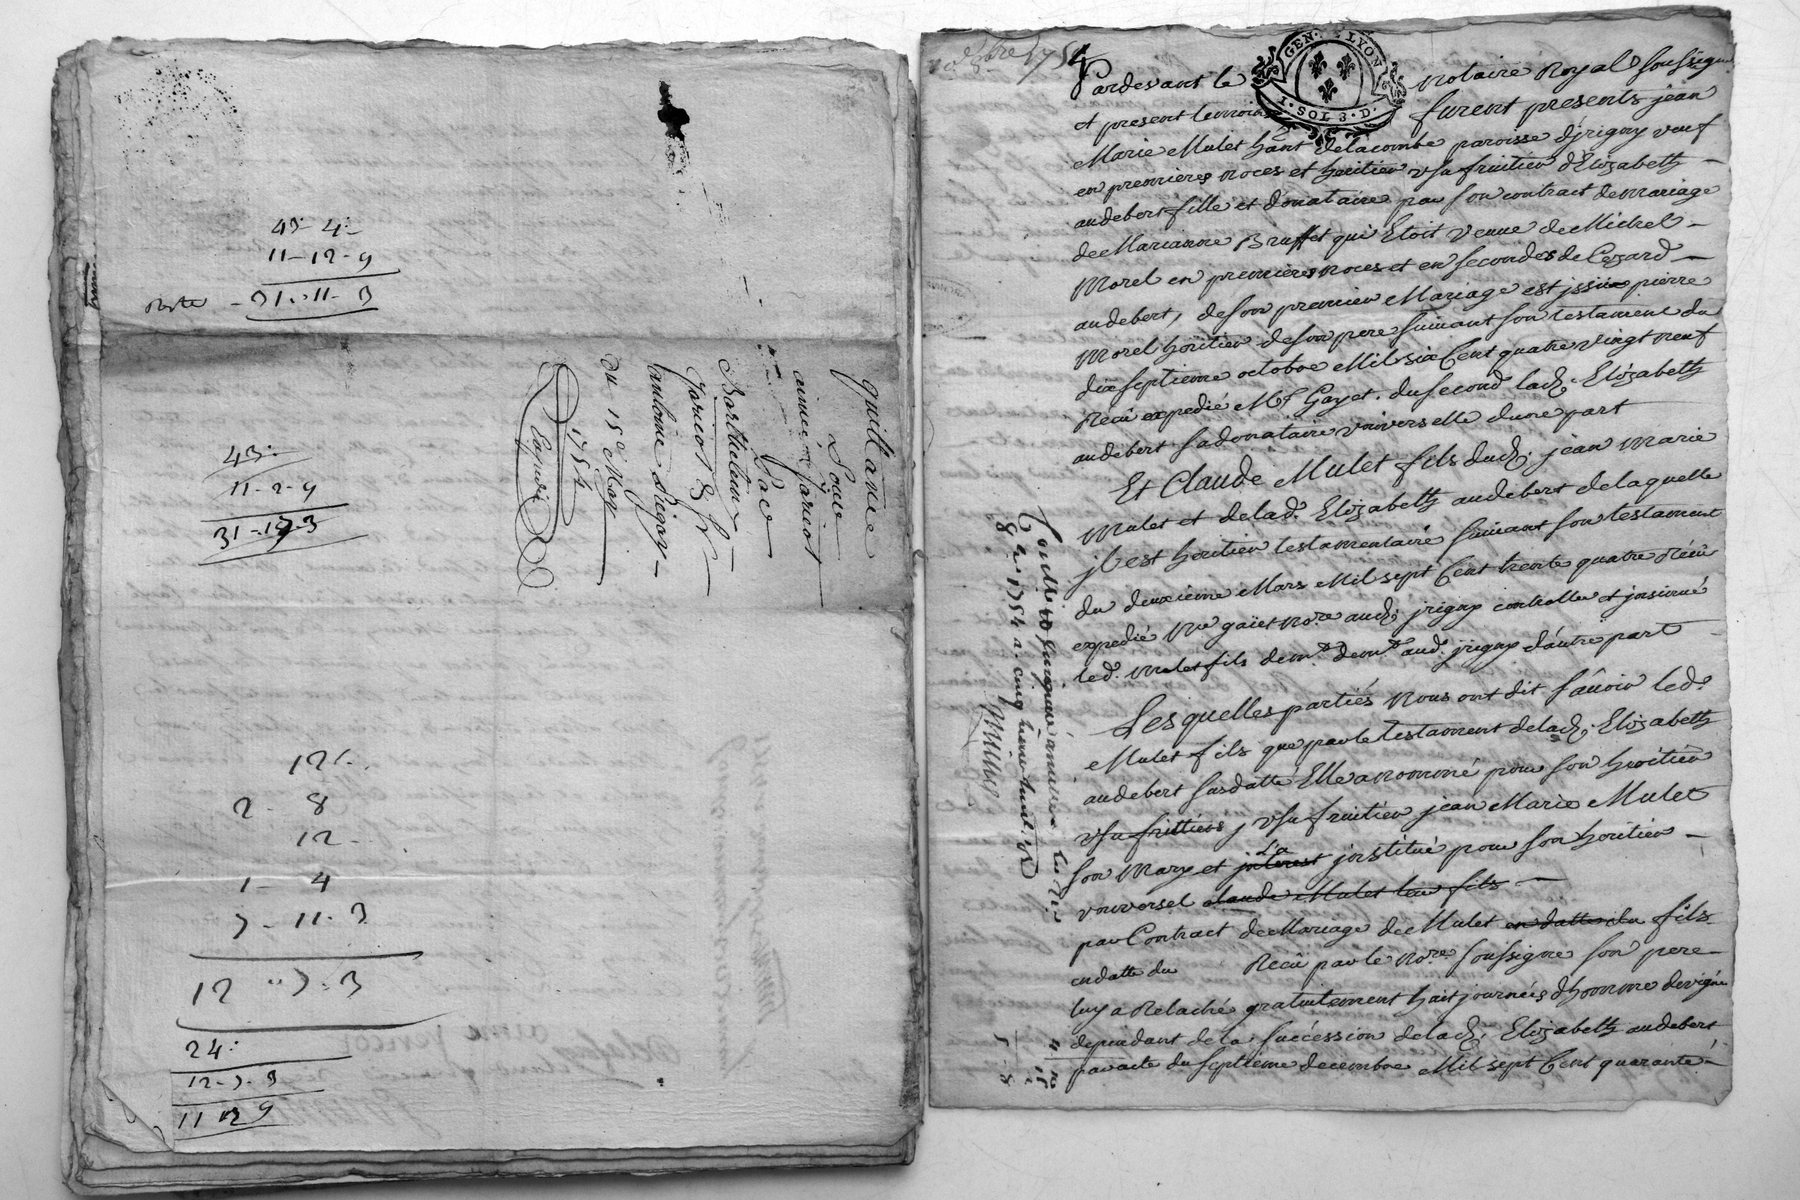 43 - 4 -
11 - 12 - 9
Reste - 31 - 11 - 3
43 -
11 - 2 - 9
31 - 3
12 -
2 - 8
12 -
1 - 4
3 - 11 - 3
12 - 3 - 3
24 -
12 - 3 - 3
11 9
quittance
aimée Jaricot
Barthelemy
Jaricot &
antoine
du 15e May
1754
Expedié
8bre 1754
GEN. LYON
1. SOL 3. D.
Pardevant le notaire Royal soussigné
et present temoins furent presents jean
Marie Mulet hant delacombe paroisse d'jrigny veuf
en premieres noces et heritier usufruitier d'Elizabeth
audebert fille et donataire par son contract de mariage
de Marianne Bruffet qui Etoit veuve de Michel
Morel en premieres noces et en secondes de Cezard
audebert, de son premier Mariage est jssue pierre
Morel heritier de son pere suivant son testament du
dix septieme octobre Mil six Cent quatre vingt neuf
Receu expedié Me Gayet. du second lad. Elizabeth
audebert sa donataire universelle dune part
Et Claude Mulet fils dud. jean marie
Mulet et delad. Elizabeth audebert de laquelle
jl est heritier testamentaire suivant son testament
du deuxieme Mars Mil sept Cent trente quatre Receu
expedié Me gaiet nore aud. jrigny controllé et jnsinué
led. Mulet fils demt. aud. jrigny d'autre part
Les quelles parties Nous ont dit sauoir led.
Mulet fils que par le testament delad. Elizabeth
audebert susdatté Elle a nommé pour son heritier
usufruitier jean Marie Mulet
son Mary et La jnstitué pour son heritier
universel claude Mulet leur fils
par Contract de Mariage de Mulet fils
en datte du Receu par le nore soussigné son pere
luy a Relaché gratuitement huit journées d'homme de vigne
dependant de la succession delad. Elizabeth audebert
par acte du septieme decembre Mil sept Cent quarante
8bre 1754 R. cinq livres huit s